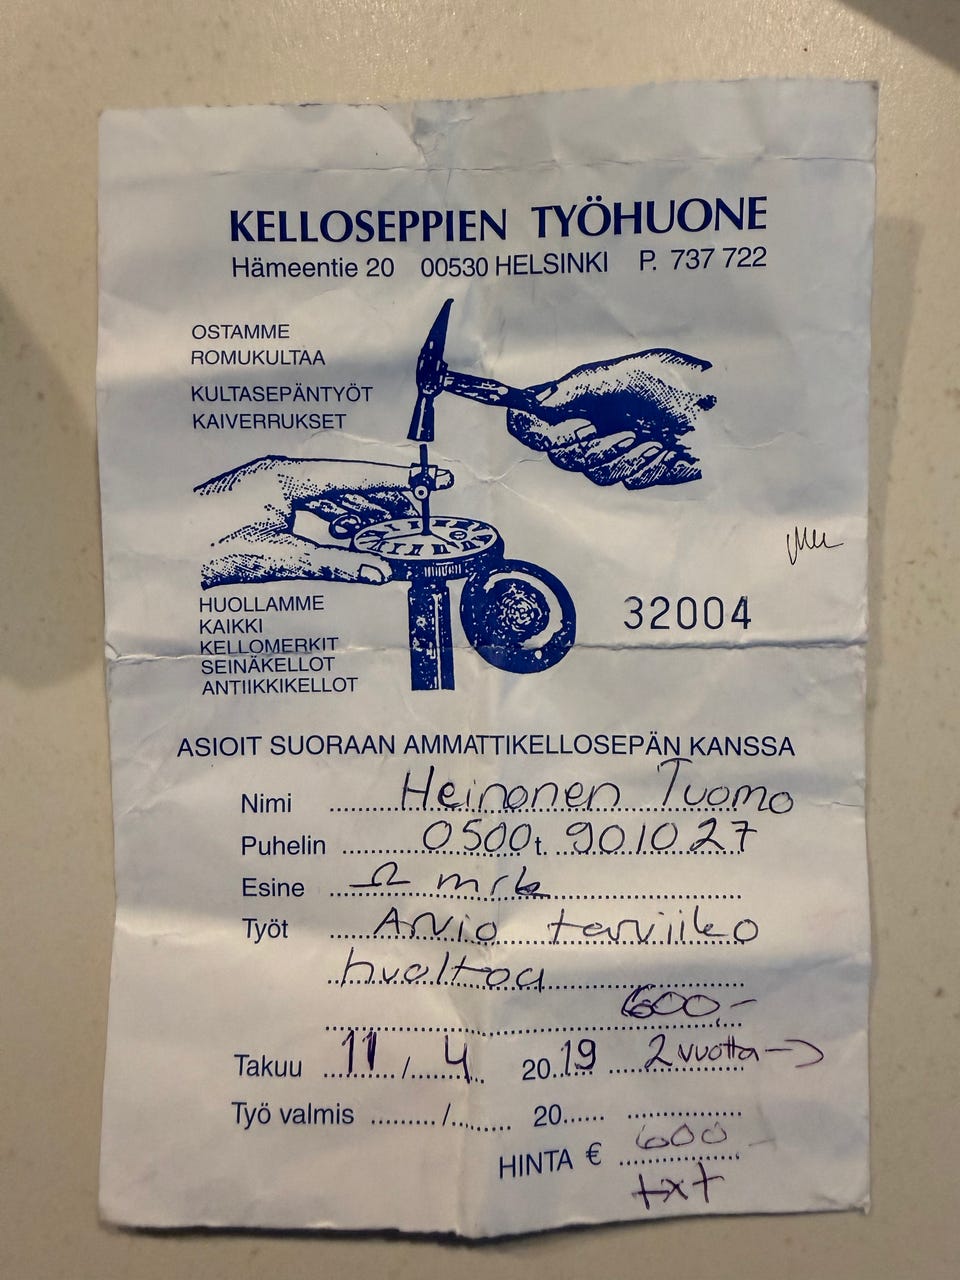 KELLOSEPPIEN TYÖHUONE
Hämeentie 20 00530 HELSINKI P. 737 722
OSTAMME
ROMUKULTAA
KULTASEPÄNTYÖT
KAIVERRUKSET
HUOLLAMME
KAIKKI
KELLOMERKIT
SEINÄKELLOT
ANTIIKKIKELLOT
32004
ASIOIT SUORAAN AMMATTIKELLOSEPÄN KANSSA
Nimi Heinonen Tuomo
Puhelin 0500t. 901027
Esine Ω mrk
Työt Arvio tarviiko
huoltoa
600,-
Takuu 11 / 4 20 19 2 vuotta →
Työ valmis ......... /......... 20......
HINTA € 600 -
txt